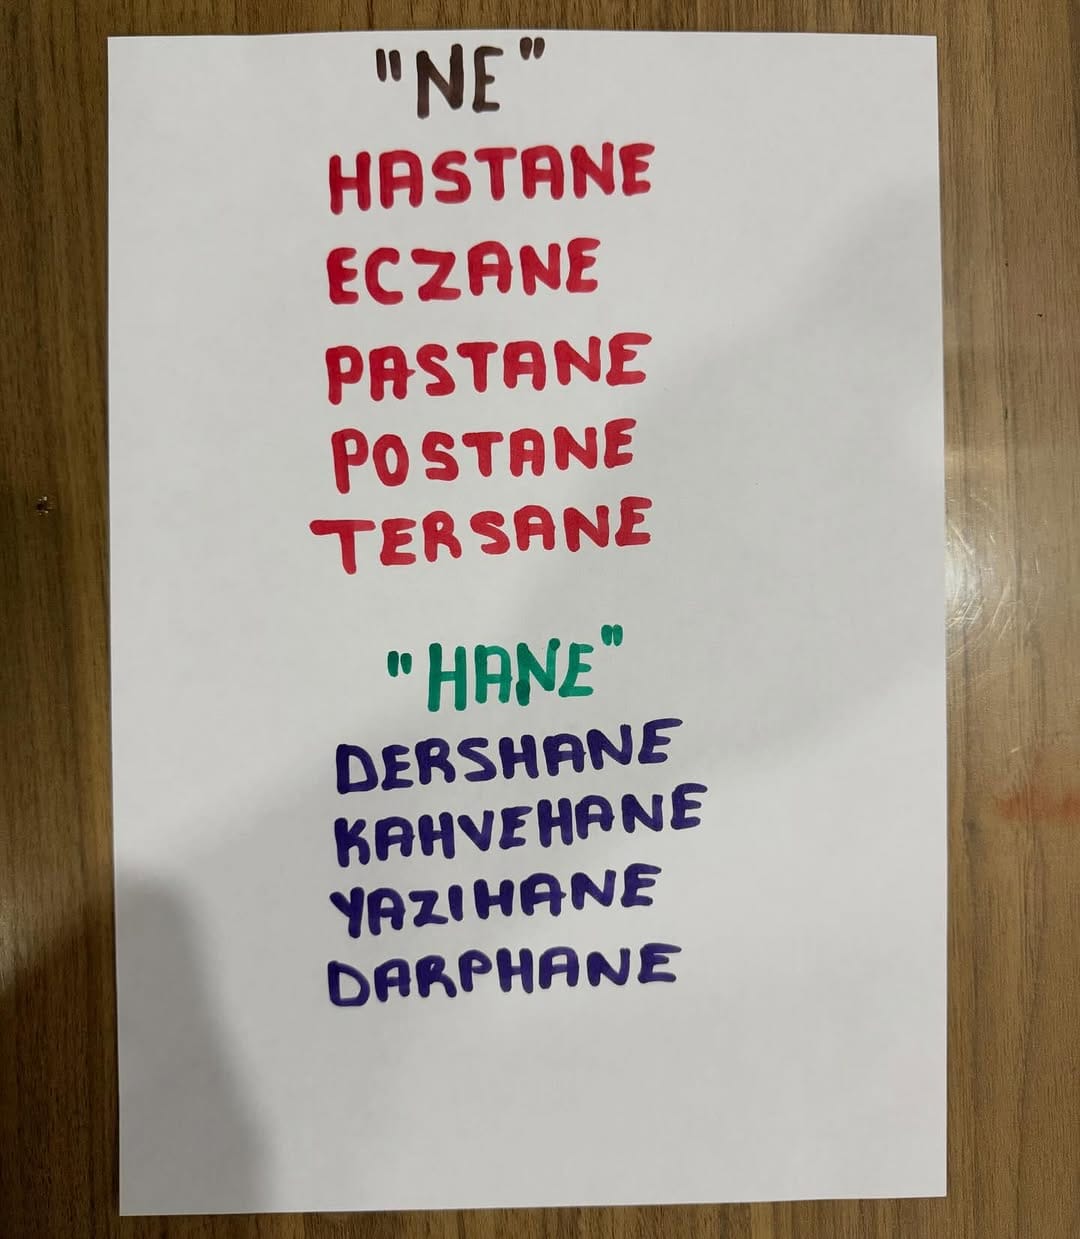 "NE"
HASTANE
ECZANE
PASTANE
POSTANE
TERSANE
"HANE"
DERSHANE
KAHVEHANE
YAZIHANE
DARPHANE